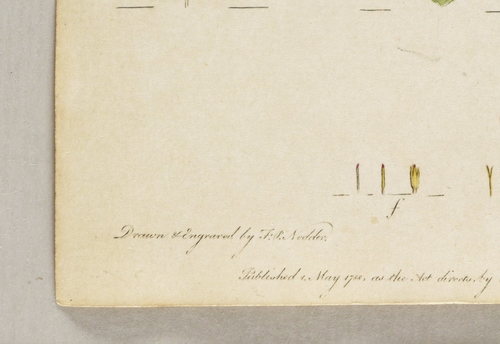 f
Drawn & Engraved by F. P. Nodder.
Published 1, May 1788, as the Act directs, by